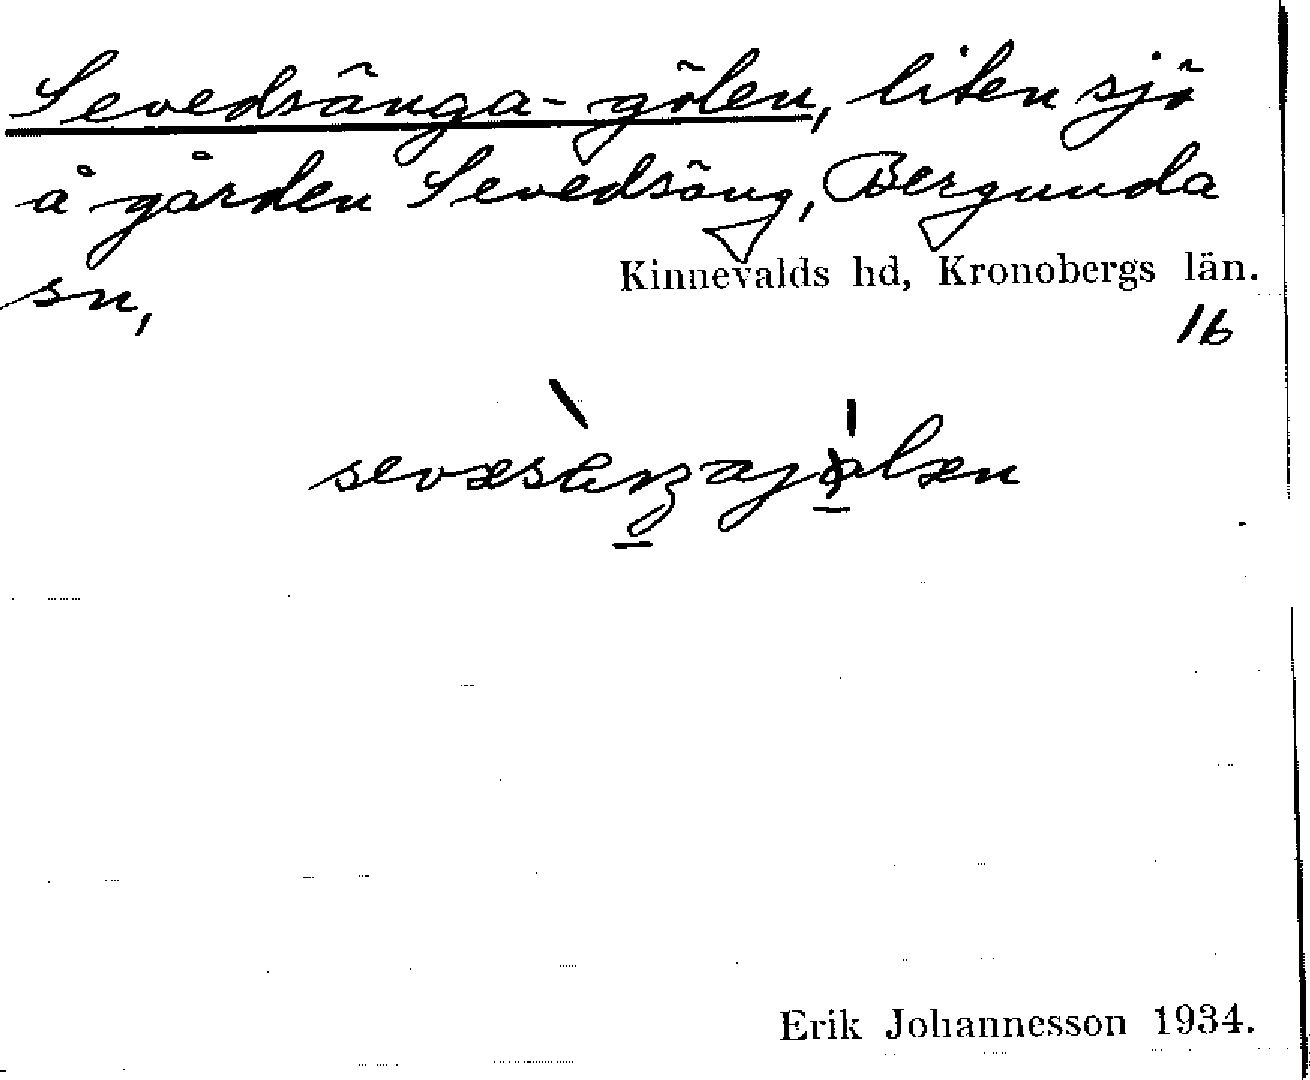 Sevedsänga-gölen, liten sjö
å gården Sevedsäng, Bergunda
sn,
Kinnevalds hd, Kronobergs län.
16
Erik Johannesson 1934.